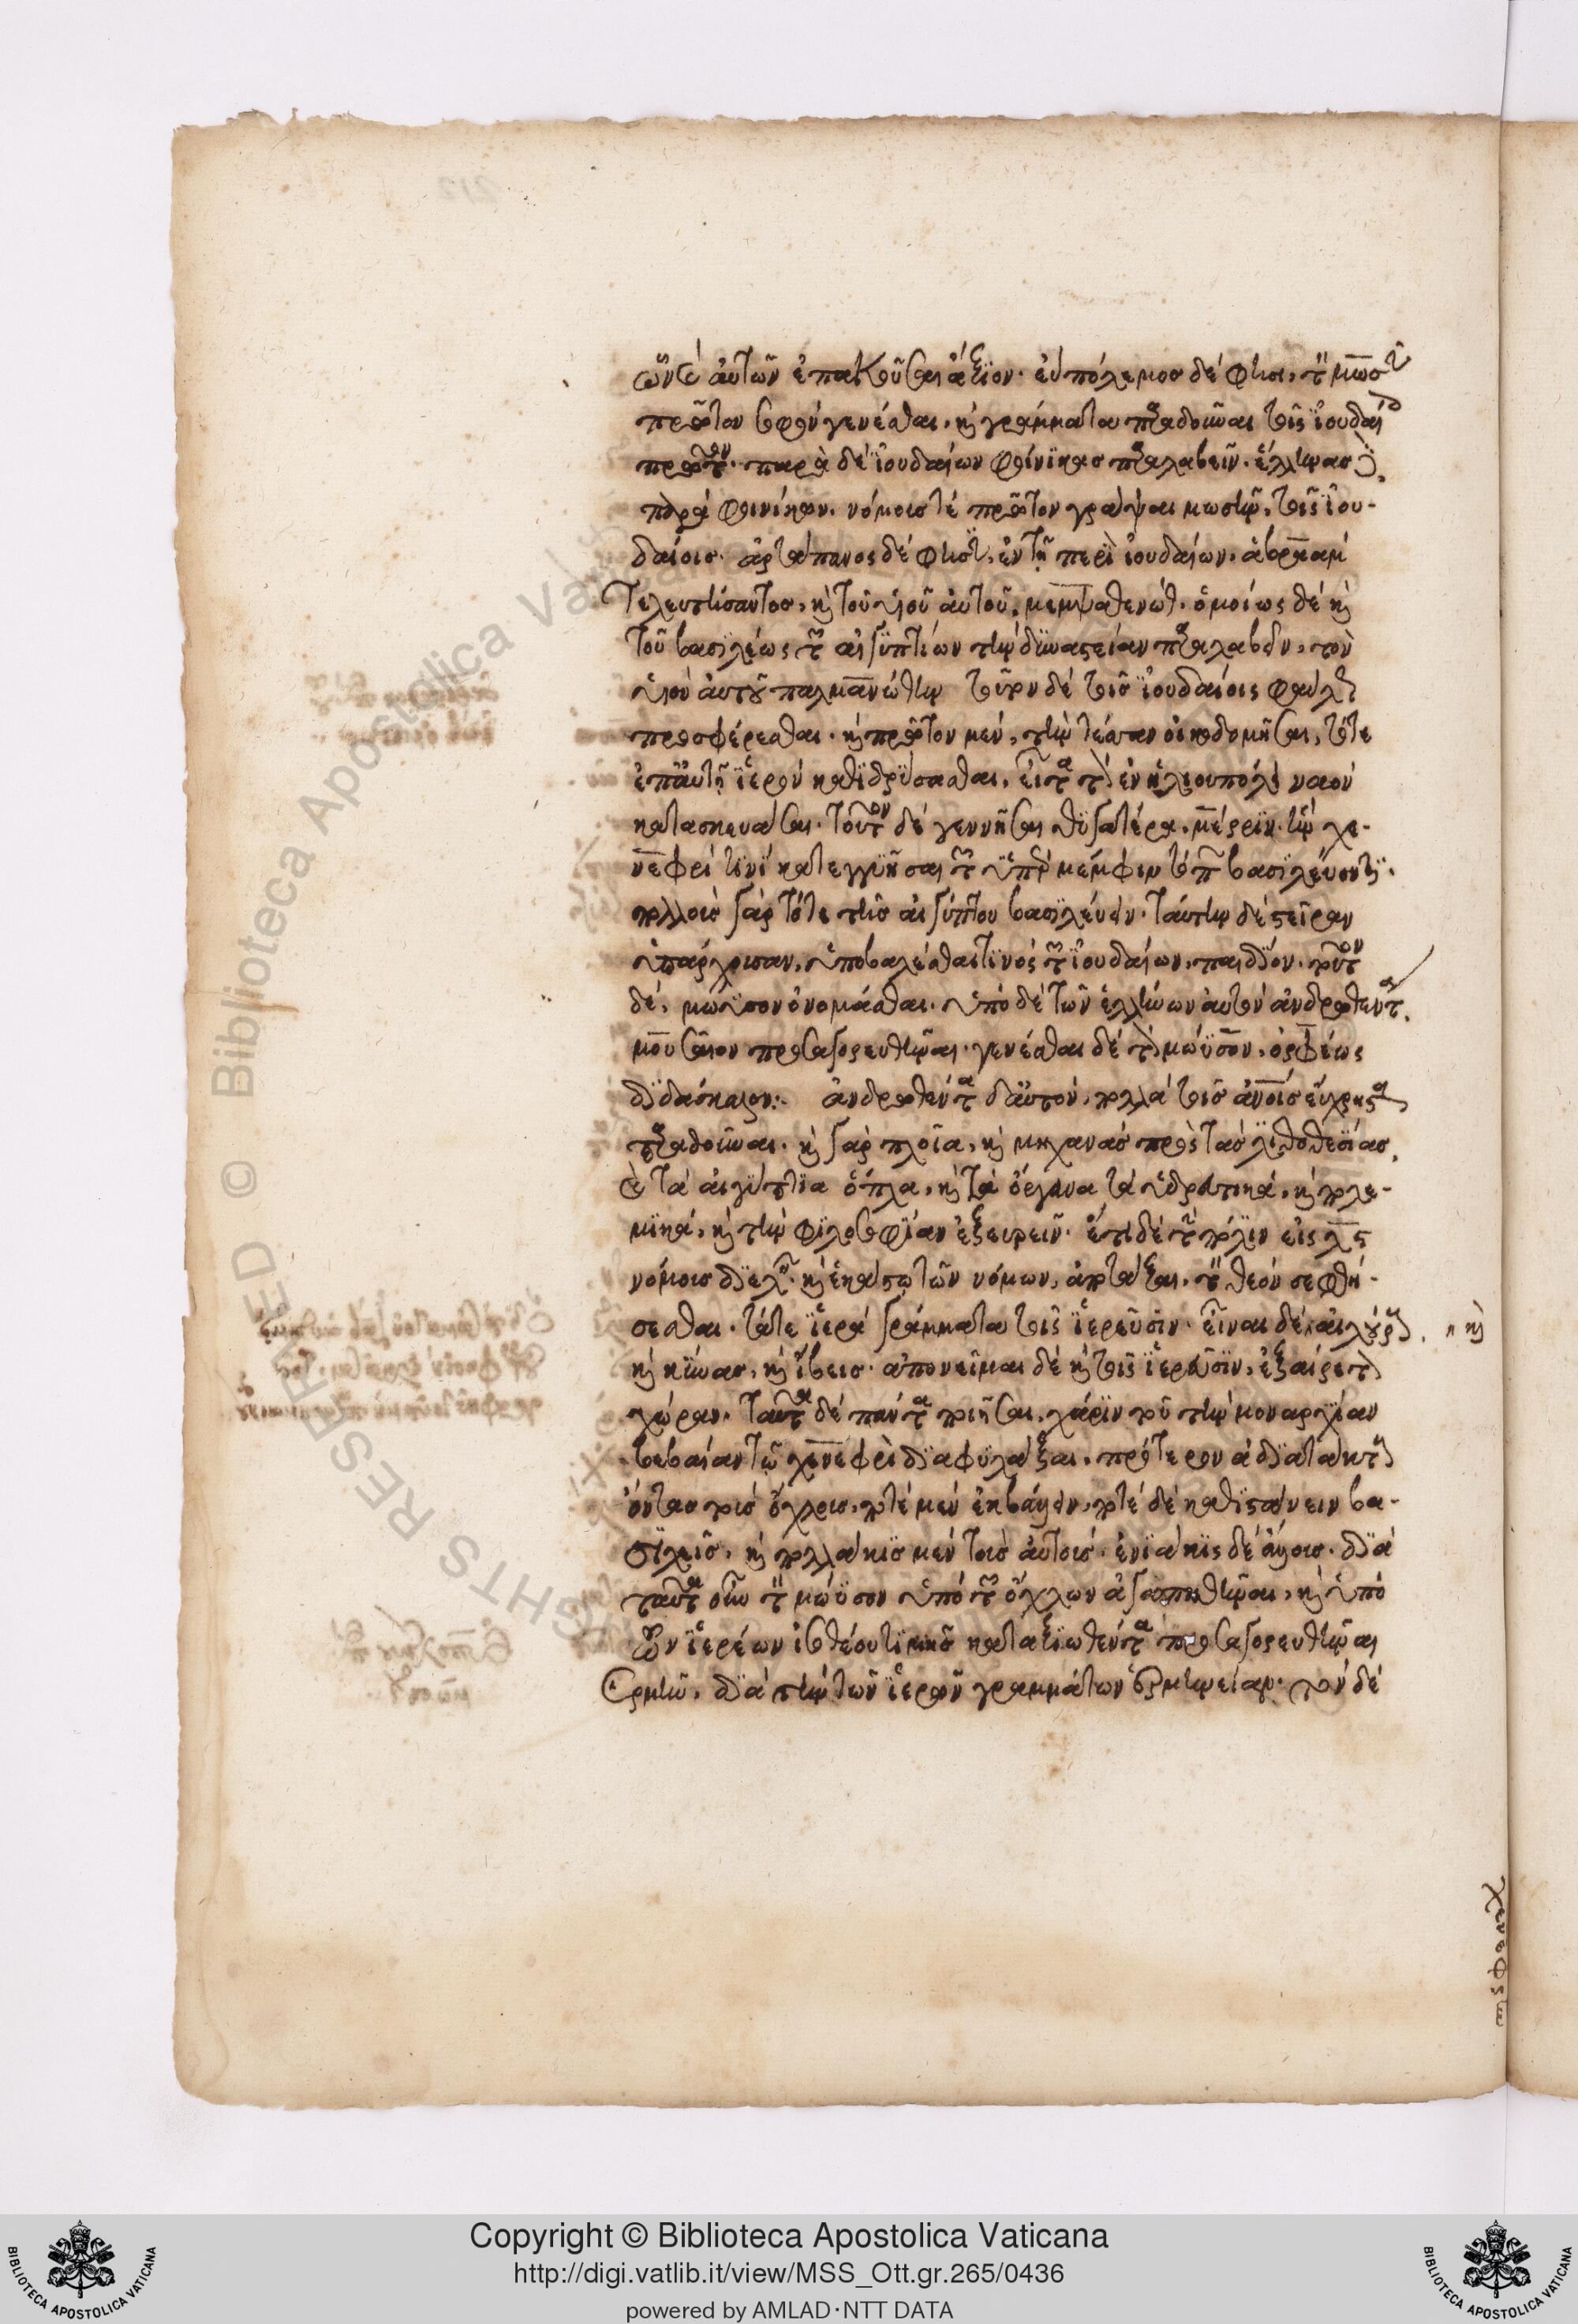 αὐτῶν ἐπακοῦσαι ἄξιον· εὐπόλεμος δέ φησι, τὸν μωσῆ
πρῶτον σοφὸν γενέσθαι, καὶ γράμματα παραδοῦναι τοῖς ἰουδαί
πρῶτον· παρὰ δὲ ἰουδαίων φοίνικας παραλαβεῖν· ἕλληνας δὲ
παρὰ φοινίκων. νόμους τὲ πρῶτον γράψαι μωσῆν, τοῖς ἰου-
δαίοις· ἀρτάπανος δέ φησὶ, ἐν τῇ περὶ ἰουδαίων, ἀβραὰμ
τελευτήσαντος, καὶ τοῦ υἱοῦ αὐτοῦ, μεμψασθενώθ. ὁμοίως δὲ καὶ
τοῦ βασιλέως τῶν αἰγυπτίων τὴν δυναστείαν παραλαβεῖν, τὸν
υἱὸν αὐτοῦ παλμανώθην τοῦτον δὲ τοῖς ἰουδαίοις φαύλως
προσφέρεσθαι· καὶ πρῶτον μὲν, τὴν τέσσαν οἰκοδομῆσαι, τότε
ἐπ᾽ αὐτῇ ἱερὸν καθιδρύσασθαι, εἶτα τὸν ἐν ἡλιουπόλει ναὸν
κατασκευάσαι. τοῦτον δὲ γεννῆσαι θυγατέρα, μέρριν. ἣν χε-
νεφρῆ τινὶ κατεγγυῆσαι τῶν ὑπὲρ μέμφιν τόπων βασιλεύοντι·
πολλοὺς γὰρ τότε τῆς αἰγύπτου βασιλεύειν. ταύτην δὲ στεῖραν
ὑπάρχουσαν, ὑποβαλέσθαι τινὸς τῶν ἰουδαίων, παιδίον. τοῦτον
δὲ, μώυσον ὀνομάσαι. ὑπὸ δὲ τῶν ἑλλήνων αὐτὸν ἀνδρωθέντα,
μουσαῖον προσαγορευθῆναι. γενέσθαι δὲ τὸν μώϋσον, ὀρφέως
διδάσκαλον: ἀνδρωθέντα δ᾽ αὐτὸν, πολλὰ τοῖς ἀνοις εὔχρηστα
παραδοῦναι. καὶ γὰρ πλοῖα, καὶ μηχανὰς πρὸς τὰς λιθοθεσίας,
καὶ τὰ αἰγύπτια ὅπλα, καὶ τὰ ὄργανα τὰ ὑδρευτικὰ, καὶ πολε-
μικὰ, καὶ τὴν φιλοσοφίαν ἐξευρεῖν· ἔτι δὲ τὴν πόλιν εἰς λς
νόμους διελεῖν· καὶ ἑκάστῳ τῶν νόμων, ἀποτάξαι, τὸν θεὸν σεφθή-
σεσθαι. τάτε ἱερὰ γράμματα τοῖς ἱερεῦσιν· εἶναι δὲ αἰλούρους, καὶ
καὶ κύνας, καὶ ἴβεις· ἀπονεῖμαι δὲ καὶ τοῖς ἱερεῦσιν, ἐξαίρετον
χώραν. ταῦτα δὲ πάντα ποιῆσαι, χάριν τοῦ τὴν μοναρχίαν
βεβαίαν τῷ χενεφρῆ διαφυλάξαι, πρότερον ἀδιατάκτους
ὄντας τοὺς ὄχλους, ποτὲ μὲν ἐκβάλλειν, ποτὲ δὲ καθιστάνειν βα-
σιλεῖς, καὶ πολλάκις μὲν τοὺς αὐτοὺς. ἐνιάκις δὲ ἄλλους. διὰ
ταῦτα οὖν τὸν μώϋσον ὑπὸ τῶν ὄχλων ἀγαπηθῆναι, καὶ ὑπὸ
τῶν ἱερέων ἰσοθέου τιμῆς καταξιωθέντα προσαγορευθῆναι
ἑρμῆν, διὰ τὴν τῶν ἱερῶν γραμμάτων ἑρμηνείαν. τὸν δὲ
Copyright © Biblioteca Apostolica Vaticana
http://digi.vatlib.it/view/MSS_Ott.gr.265/0436
powered by AMLAD·NTT DATA